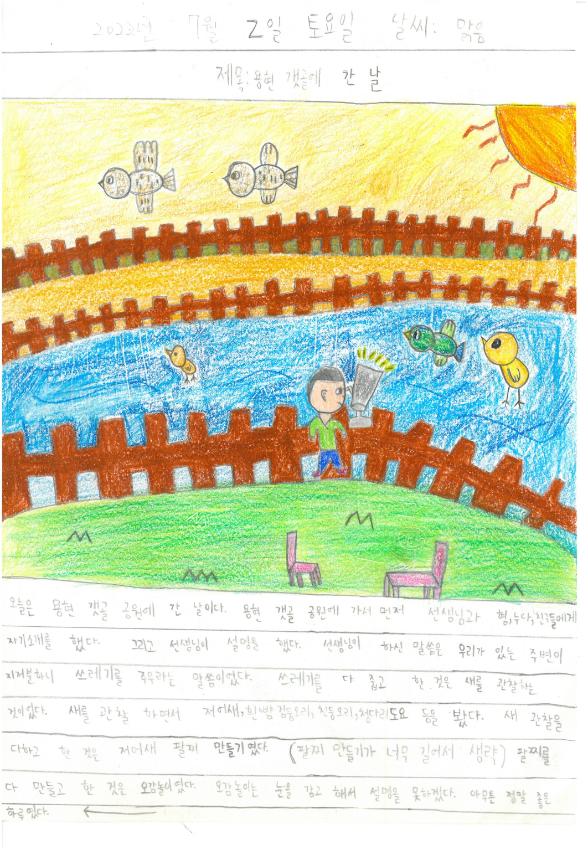 2023년 7월 2일 토요일 날씨: 맑음
제목: 용현 갯골에 간 날
오늘은 용현 갯골 공원에 간 날이다. 용현 갯골 공원에 가서 먼저 선생님과 형,누나,친구들에게
자기소개를 했다. 그리고 선생님이 설명을 했다. 선생님이 하신 말씀은 우리가 있는 주변이
지저분하니 쓰레기를 주우라는 말씀이었다. 쓰레기를 다 줍고 한 것은 새를 관찰하는
것이었다. 새를 관찰 하면서 저어새,흰뺨검둥오리,청둥오리,청다리도요 등을 봤다. 새 관찰을
다하고 한 것은 저어새 팔찌 만들기였다. (팔찌 만들기가 너무 길어서 생략) 팔찌를
다 만들고 한 것은 오감놀이였다. 오감놀이는 눈을 감고 해서 설명을 못하겠다. 아무튼 정말 좋은
하루였다.